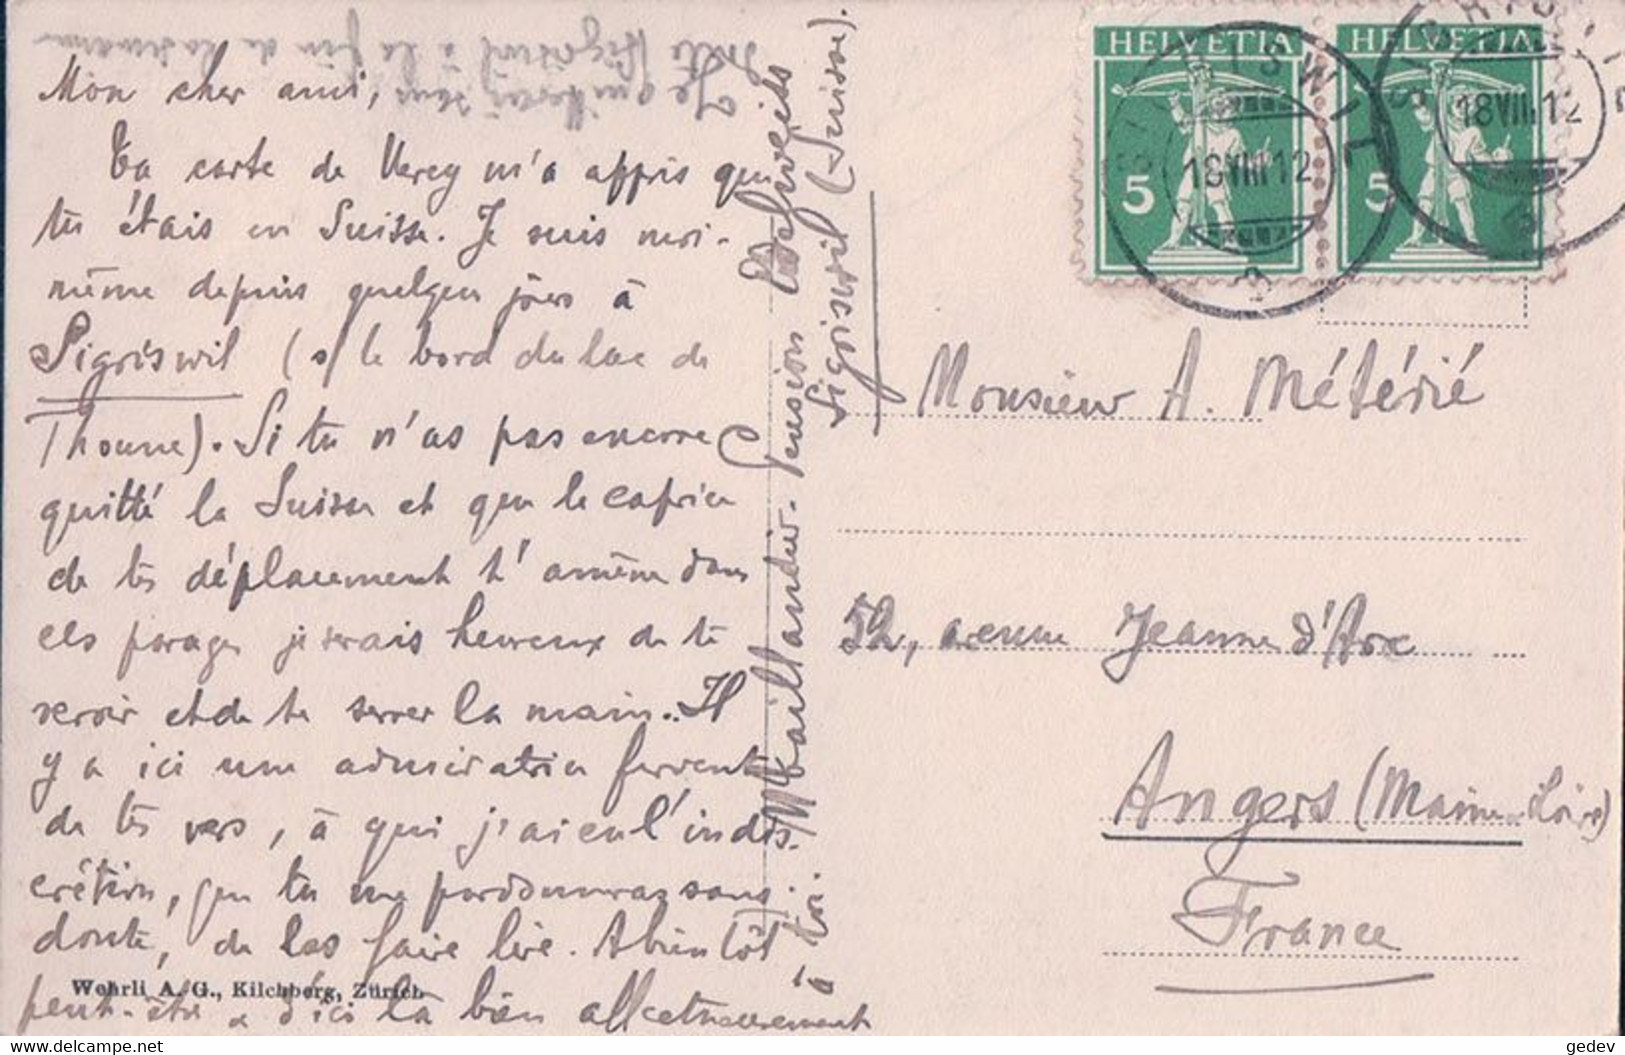 Je quitterai sans
Sigriswil à la fin de la semaine
Mon cher ami,
Ta carte de Vevey m'a appris que
tu étais en Suisse. Je suis moi-
même depuis quelques jours à
Sigriswil (s/ le bord du lac de
Thoune). Si tu n'as pas encore
quitté la Suisse et que le caprice
de tes déplacements t'amène dans
ces parages je serais heureux de te
revoir et de te serrer la main. Il
y a ici une admiratrice fervente
de tes vers, à qui j'ai eu l'indis-
crétion, que tu me pardonneras sans
doute, de les faire lire. A bientôt
peut-être d'ici là bien affectueusement
à toi. Maillandier. Pension Adelweiss
Sigriswil (Suisse).
Wehrli A.-G., Kilchberg, Zürich
HELVETIA HELVETIA
5 5
SIGRISWIL
18 VIII 12
SIGRISWIL
18 VIII 12
Monsieur A. Métérié
52, avenue Jeanne d'Arc
Angers (Maine-&-Loire)
France
www.delcampe.net
gedev